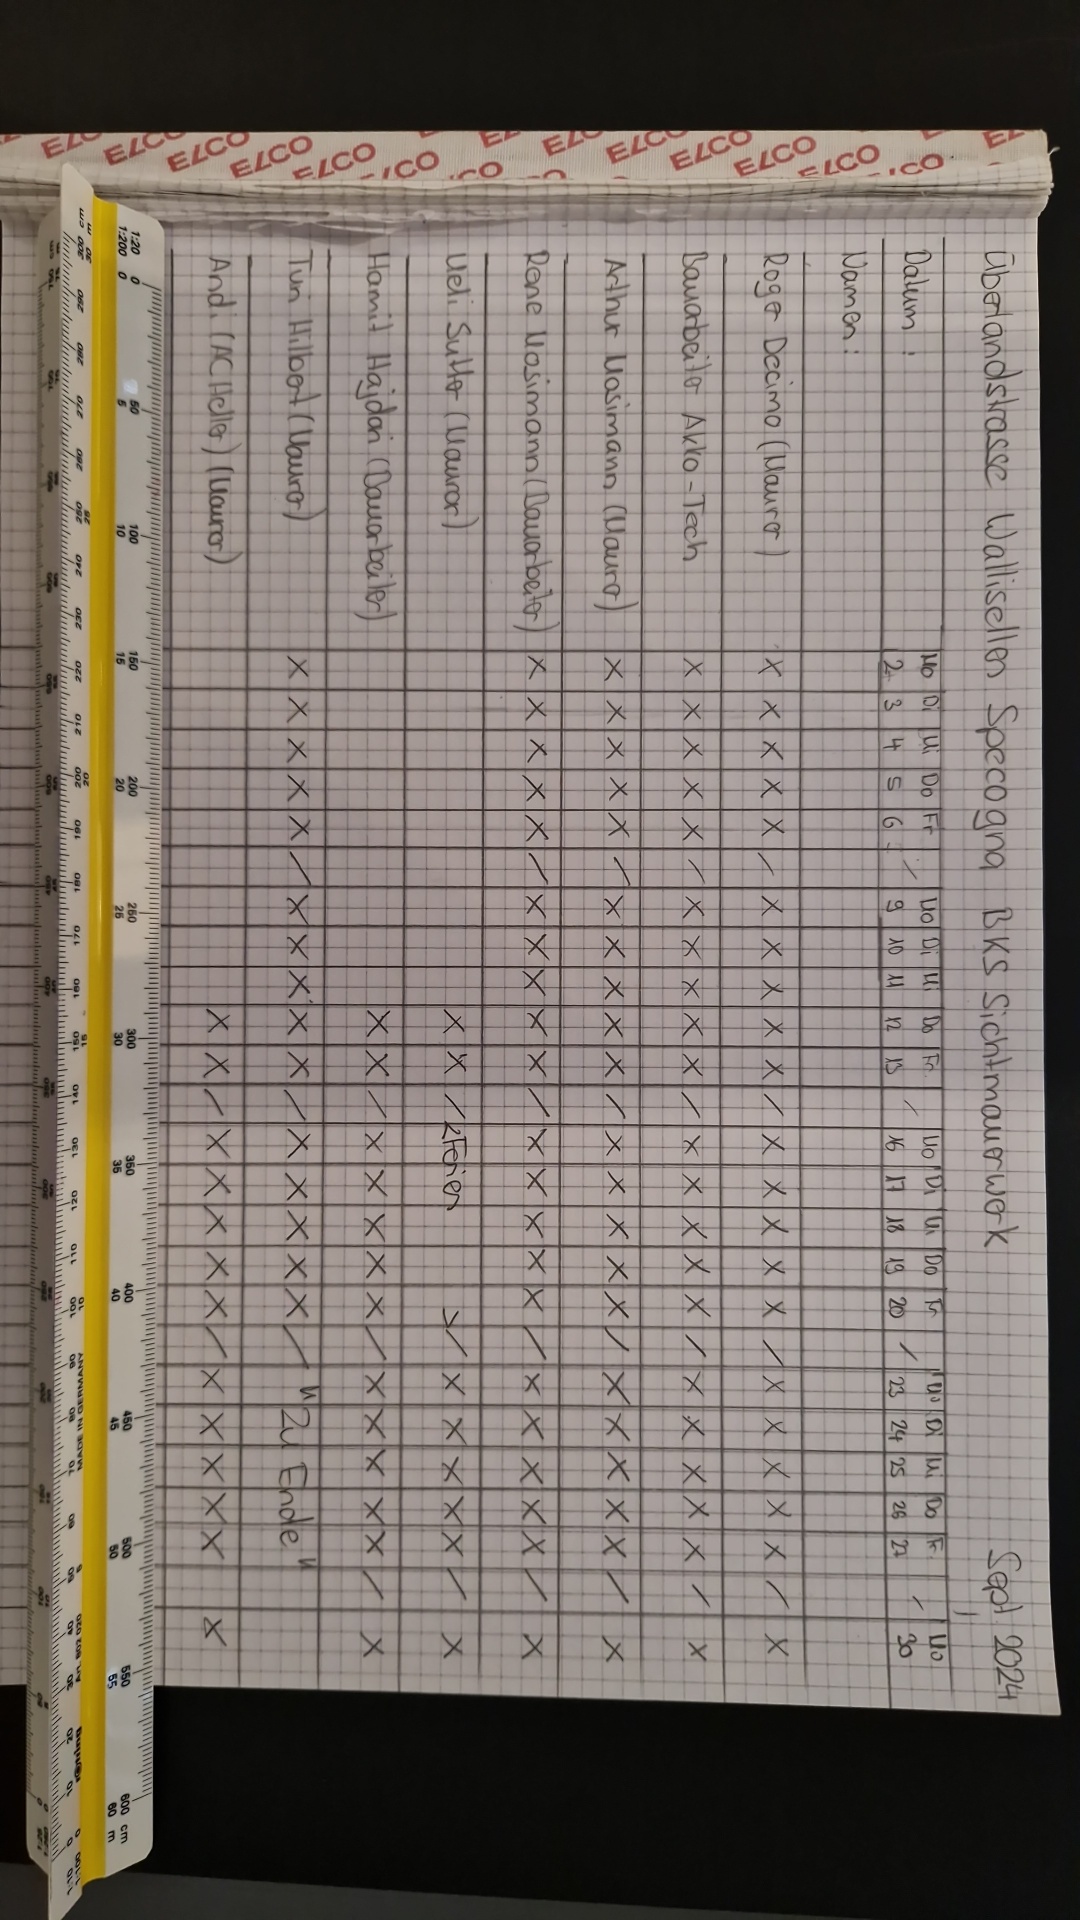 ELCO ELCO ELCO ELCO ELCO ELCO ELCO ELCO ELCO ELCO
Überlandstrasse Wallisellen Specogna BKS Sichtmauerwerk Sept. 2024
Mo Di Mi Do Fr / Mo Di Mi Do Fr / Mo Di Mi Do Fr / Mo Di Mi Do Fr / Mo
Datum: 2 3 4 5 6 9 10 11 12 13 16 17 18 19 20 23 24 25 26 27 30
Namen:
Roger Decimo (Maurer) X X X X X / X X X X X / X X X X X / X X X X X / X
Bauarbeiter Akto-Tech X X X X X / X X X X X / X X X X X / X X X X X / X
Arthur Mosimann (Maurer) X X X X X / X X X X X / X X X X X / X X X X X / X
Rene Mosimann (Bauarbeiter) X X X X X / X X X X X / X X X X X / X X X X X / X
Ueli Sutter (Maurer) X X / < Ferien > / X X X X X / X
Hamit Hajdari (Bauarbeiter) X X / X X X X X / X X X X X / X
Turi Hilbert (Maurer) X X X X X / X X X X X / X X X X X / "Zu Ende"
Andi (AC Heller) (Maurer) X X / X X X X X / X X X X X X
1:20 0 50 100 150 200 250 300 350 400 450 500 550 600 cm
1:200 0 5 10 15 20 25 30 35 40 45 50 55 60 m
MADE IN GERMANY